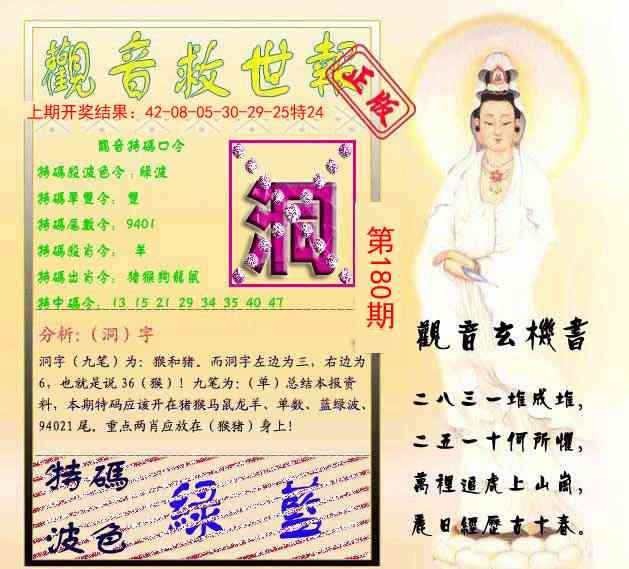 觀音救世報
正版
上期开奖结果：42-08-05-30-29-25特24
觀音特碼口令
特碼殺波色令：綠波
特碼單雙令：雙
特碼尾數令：9401
特碼殺肖令：羊
特碼出肖令：猪猴狗龍鼠
特中碼令：13 15 21 29 34 35 40 47
洞
第180期
分析：（洞）字
洞字（九笔）为：猴和猪。而洞字左边为三，右边为
6，也就是说36（猴）！九笔为：（单）总结本报资
料，本期特码应该开在猪猴马鼠龙羊、单数、蓝绿波、
94021尾。重点两肖应放在（猴猪）身上！
特碼
波色
綠 藍
觀音玄機書
二八三一堆成堆，
二五一十何所懼，
萬裡追虎上山崗，
農日經歷古十春。